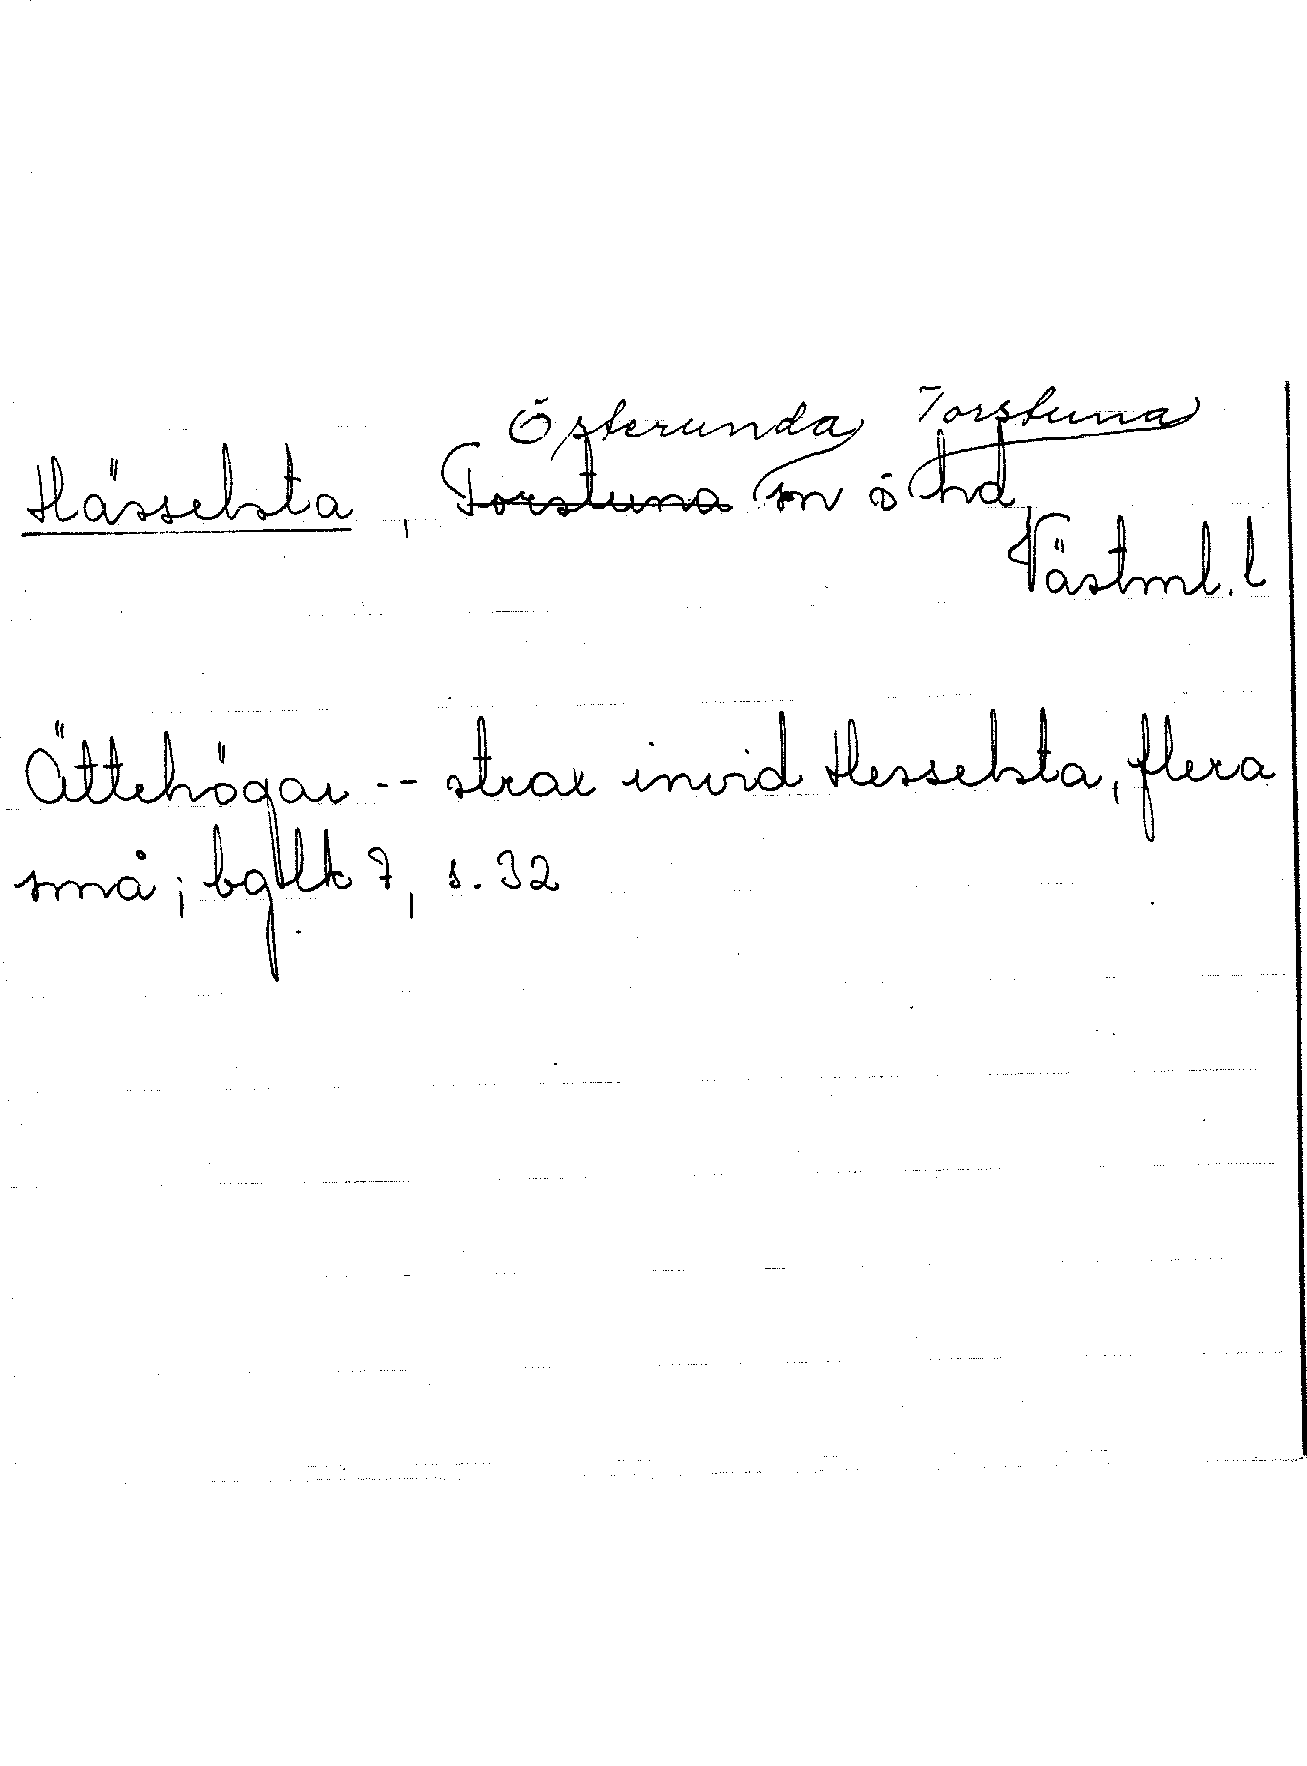 Österunda Torstuna
Hässelsta, Torstuna sn o hd
Västml. l
Ättehögar -- strax invid Hesselsta, flera
små; bglk 7, s. 32